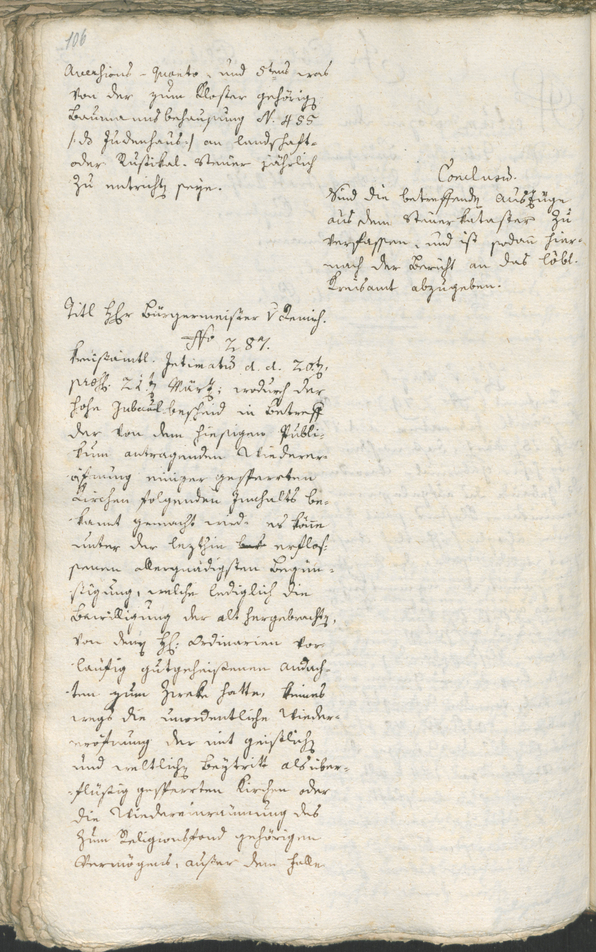 106
Aversions-Quanto, und 5tens was
von der zum Kloster gehörig
Baumannsbehausung N. 455
/: do Judenhaus :/ an landschaft-
oder Rustikal-Steuer jährlich
zu entrichten seye.
Conclusum.
Sind die betreffenden Auszüge
aus dem Steuerkataster zu
verfassen, und ist sodann hier-
nach der Bericht an das löbl.
Kreisamt abzugeben.
Titl Hr Bürgermeister v
287.
Kreisämtl. Intimatum d. d. 20ten,
praes. 21ten März; wodurch der
hohe Gubernalbescheid in Betreff
der von dem hiesigen Publi-
kum antragenden Wiederer-
öfnung einiger gesperrten
Kirchen folgenden Inhalts be-
kannt gemacht wird: es könne
unter der letzthin erflos-
senen allergnädigsten Begün-
stigung, welche lediglich die
Bewilligung der alt hergebrachten,
von denen HH: Ordinarien vor-
läufig gutgeheißenen Andach-
ten zum Zweke hatte, keines
wegs die unordentliche Wieder-
eröfnung der mit geistlich
und weltlichen Beytritt als über-
flüßig gesperrten Kirchen oder
die Wiedereinräumung des
zum Religionsfond gehörigen
Vermögens, außer dem Falle